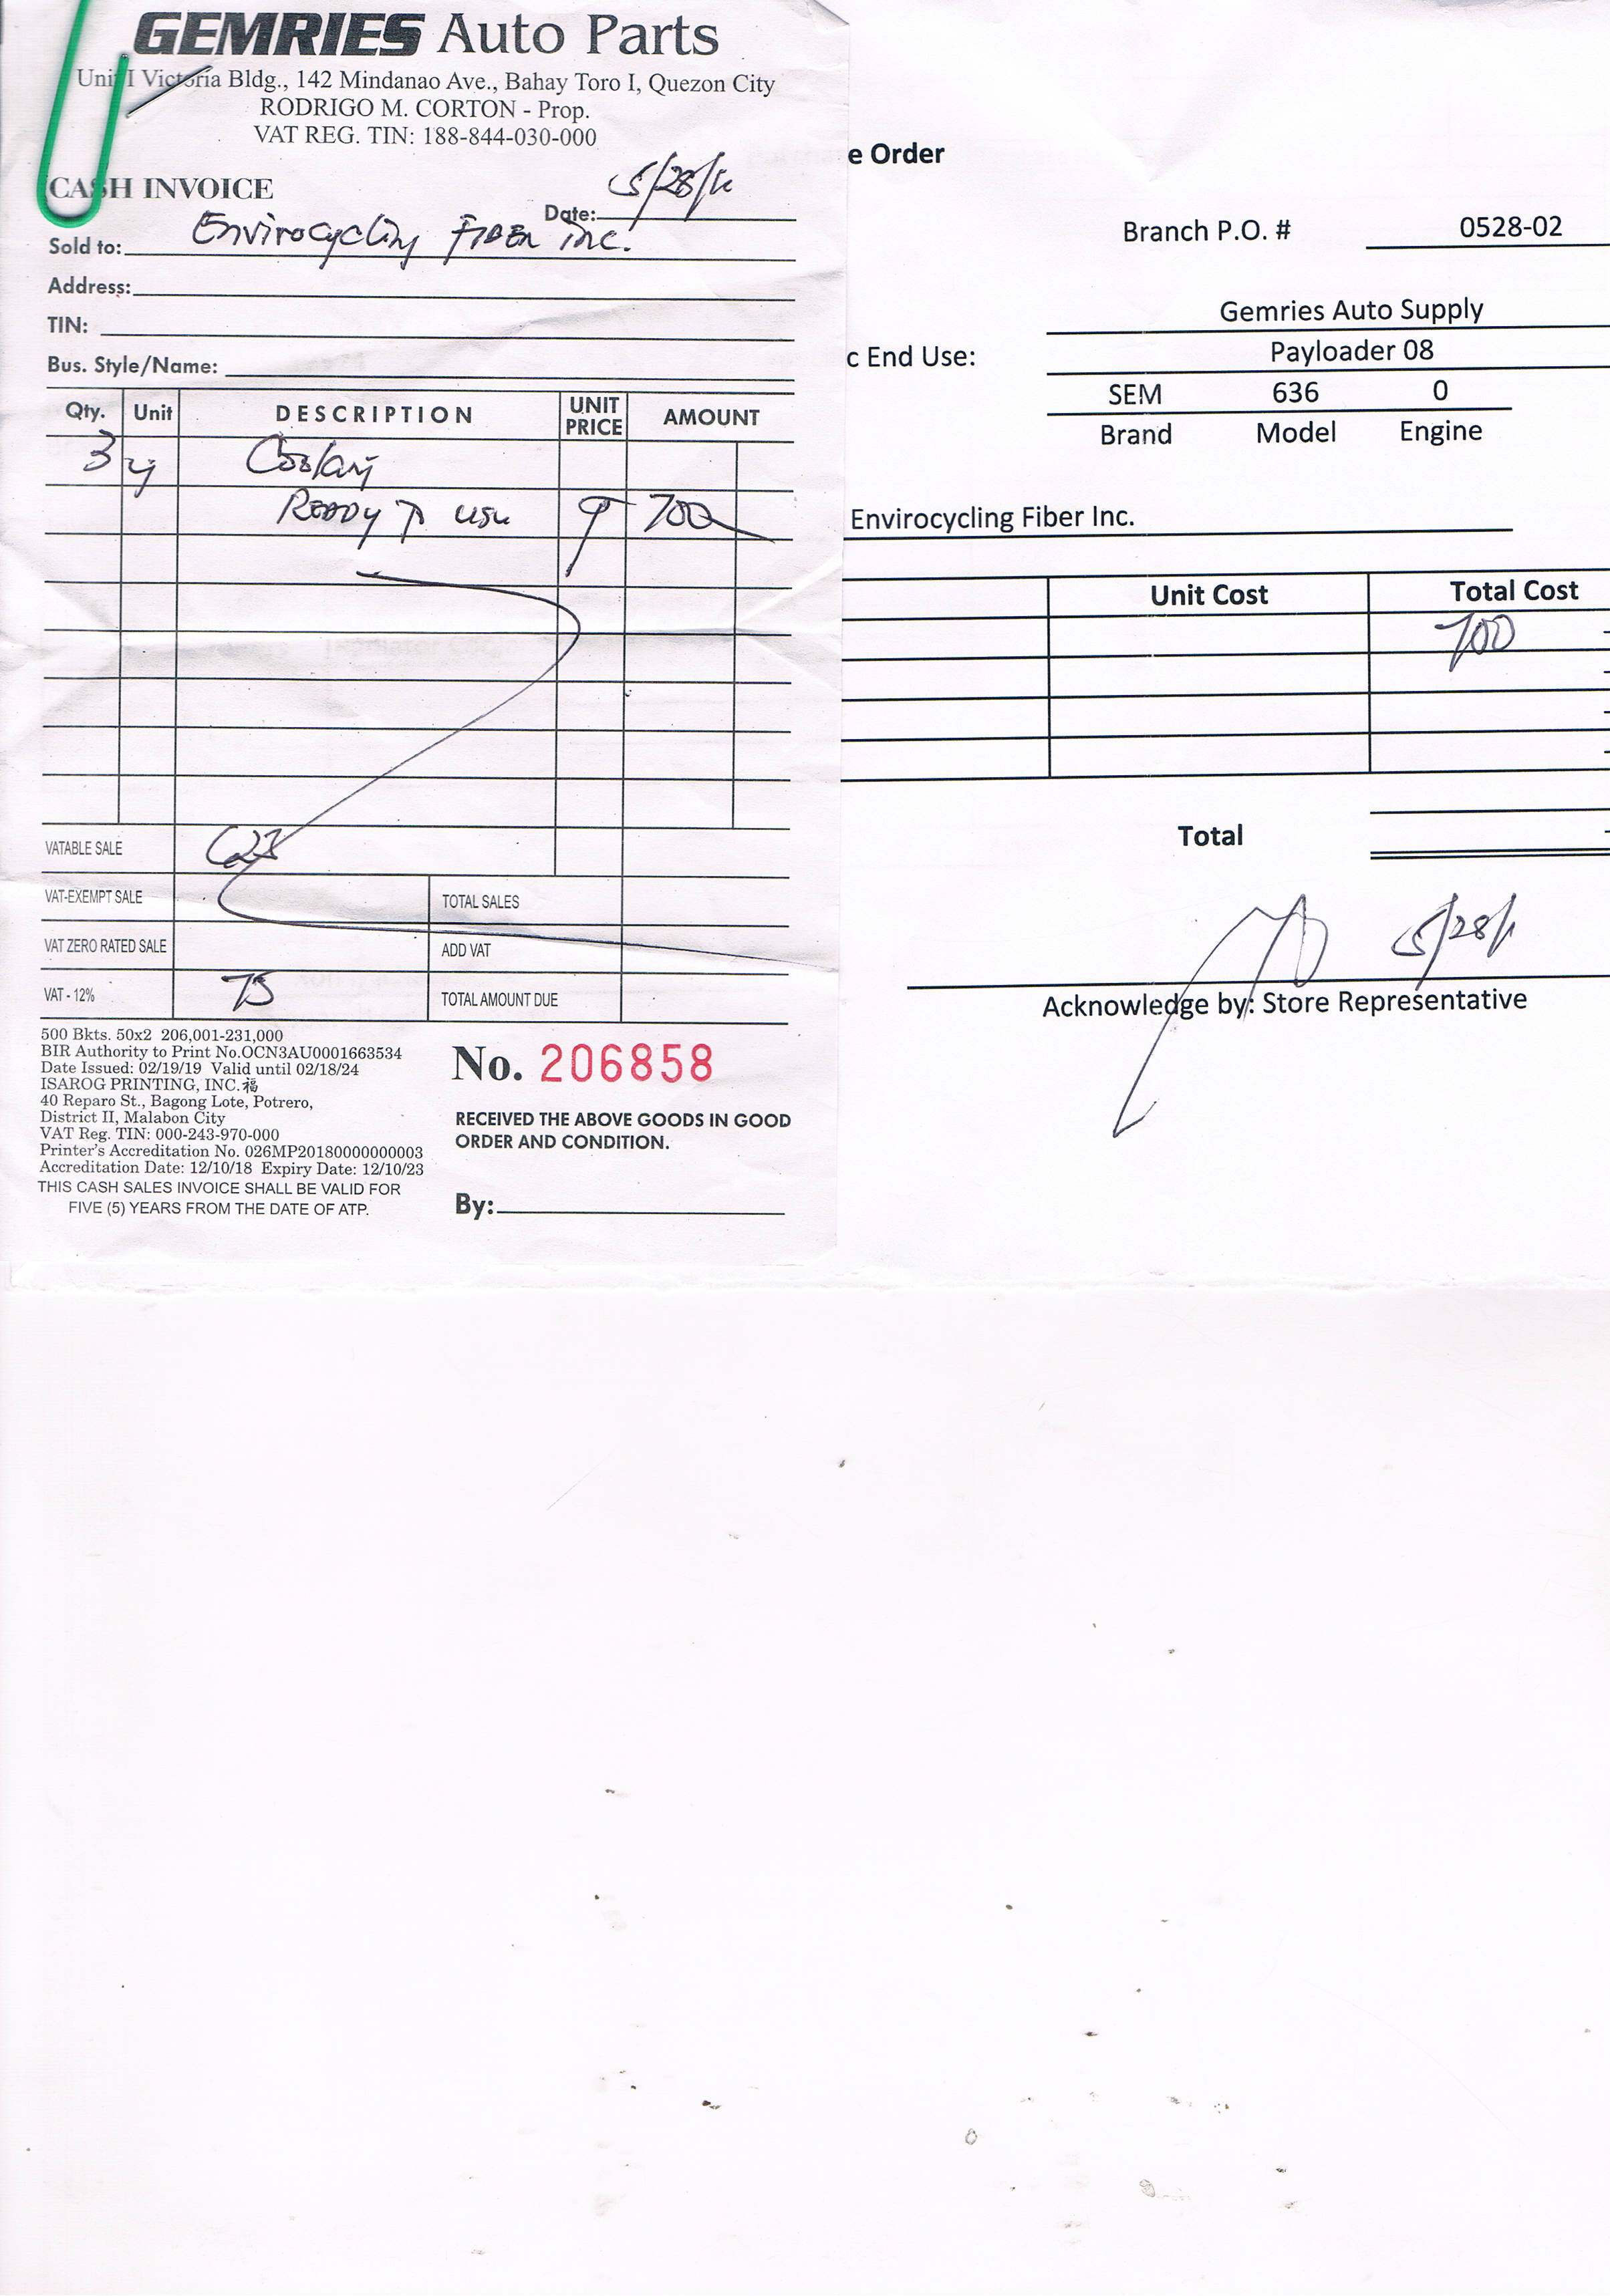 GEMRIES Auto Parts
Unit I Victoria Bldg., 142 Mindanao Ave., Bahay Toro I, Quezon City
RODRIGO M. CORTON - Prop.
VAT REG. TIN: 188-844-030-000
CASH INVOICE
Date: 5/28/
Sold to: Envirocycling Fiber Inc.
Address:
TIN:
Bus. Style/Name:
Qty. Unit DESCRIPTION UNIT PRICE AMOUNT
3
READY use 700
VATABLE SALE
VAT-EXEMPT SALE TOTAL SALES
VAT ZERO RATED SALE ADD VAT
VAT - 12% 75 TOTAL AMOUNT DUE
500 Bkts. 50x2 206,001-231,000
BIR Authority to Print No.OCN3AU0001663534
Date Issued: 02/19/19 Valid until 02/18/24
ISAROG PRINTING, INC.福
40 Reparo St., Bagong Lote, Potrero,
District II, Malabon City
VAT Reg. TIN: 000-243-970-000
Printer's Accreditation No. 026MP20180000000003
Accreditation Date: 12/10/18 Expiry Date: 12/10/23
THIS CASH SALES INVOICE SHALL BE VALID FOR
FIVE (5) YEARS FROM THE DATE OF ATP.
No. 206858
RECEIVED THE ABOVE GOODS IN GOOD
ORDER AND CONDITION.
By:
e Order
Branch P.O. # 0528-02
Gemries Auto Supply
c End Use: Payloader 08
SEM 636 0
Brand Model Engine
Envirocycling Fiber Inc.
Unit Cost Total Cost
700
Total
5/28/
Acknowledge by: Store Representative